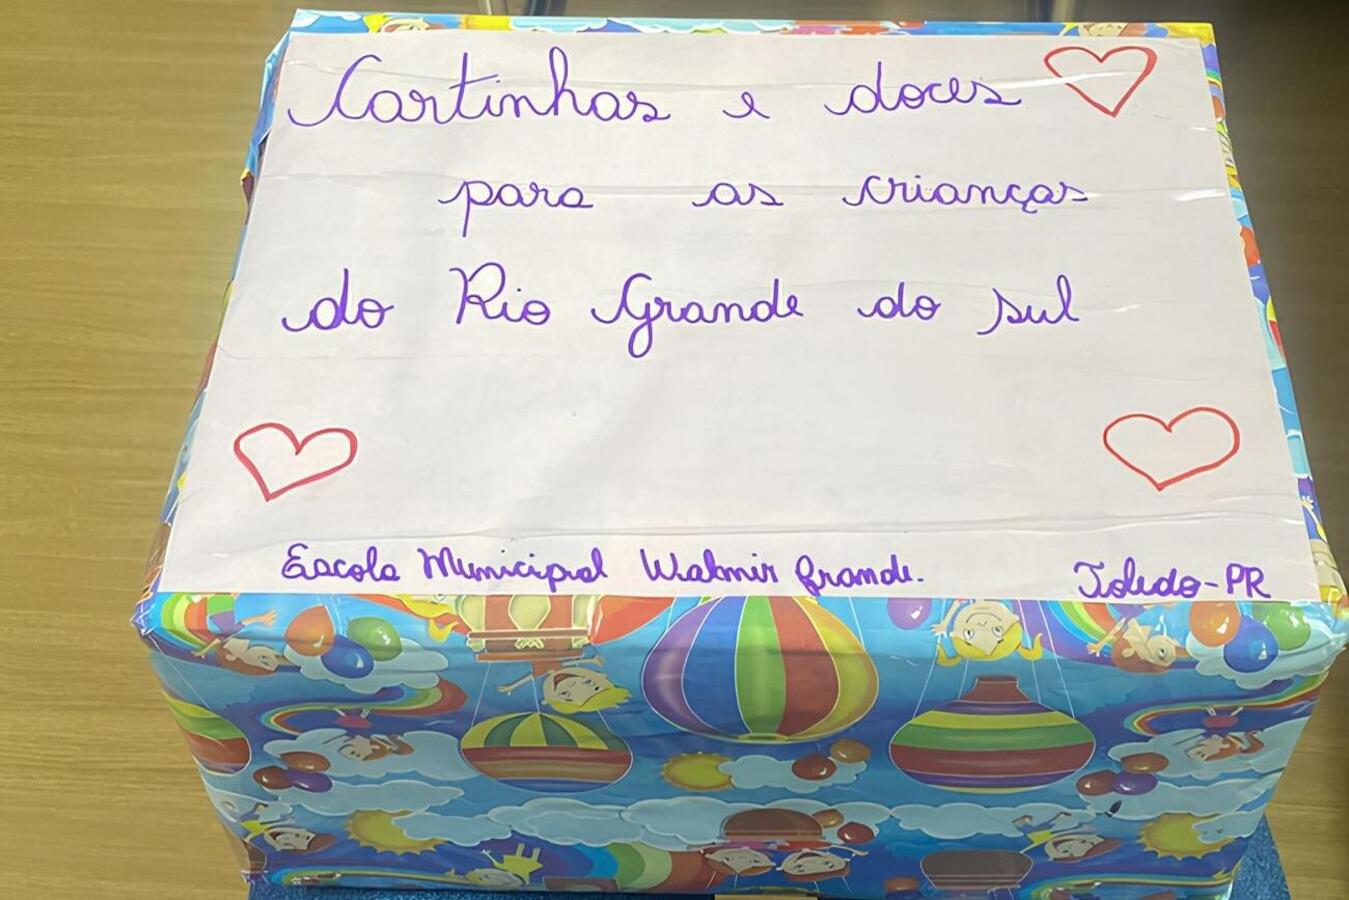 Cartinhas e doces
para as crianças
do Rio Grande do sul
Escola Municipal Walmir Grande. Toledo-PR